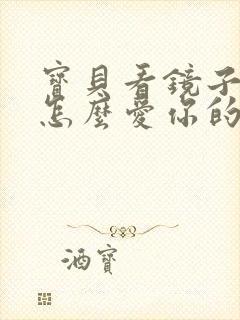 寶貝看鏡子
怎麼愛你的
酒寶